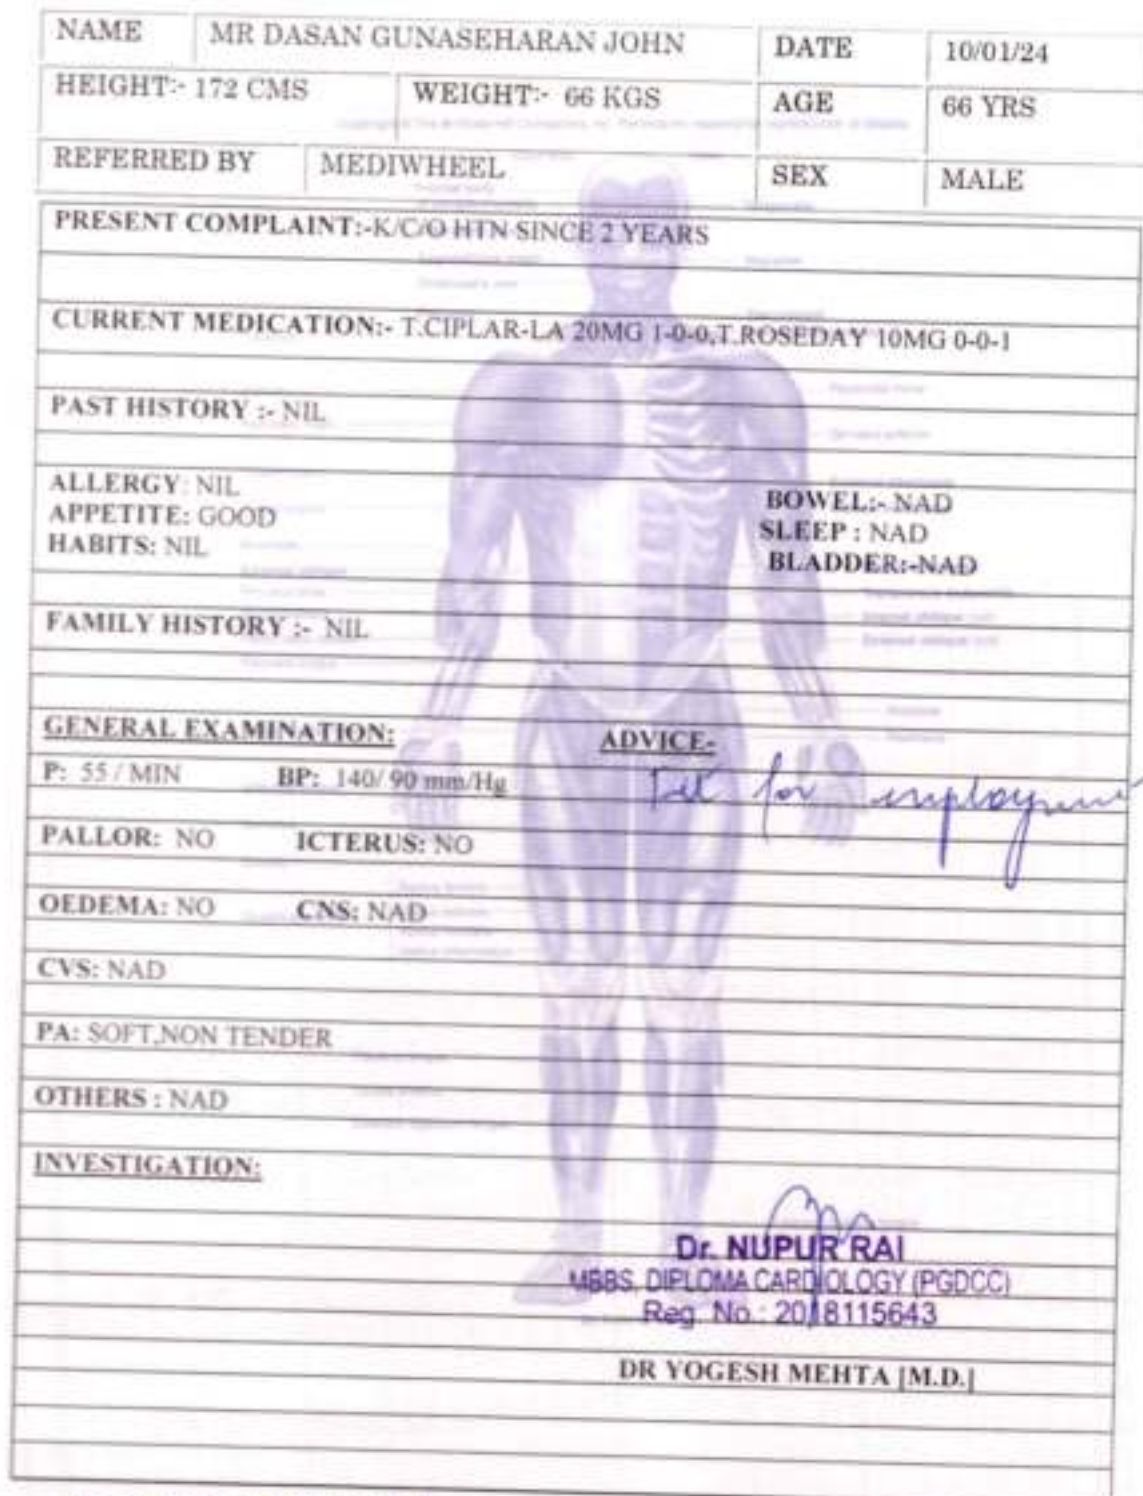 NAME MR DASAN GUNASEHARAN JOHN DATE 10/01/24
HEIGHT:- 172 CMS WEIGHT:- 66 KGS AGE 66 YRS
REFERRED BY MEDIWHEEL SEX MALE
PRESENT COMPLAINT:-K/C/O HTN SINCE 2 YEARS
CURRENT MEDICATION:- T.CIPLAR-LA 20MG 1-0-0,T.ROSEDAY 10MG 0-0-1
PAST HISTORY :- NIL
ALLERGY: NIL BOWEL:- NAD
APPETITE: GOOD SLEEP : NAD
HABITS: NIL BLADDER:-NAD
FAMILY HISTORY :- NIL
GENERAL EXAMINATION: ADVICE-
P: 55 / MIN BP: 140/ 90 mm/Hg Fit for employment
PALLOR: NO ICTERUS: NO
OEDEMA: NO CNS: NAD
CVS: NAD
PA: SOFT,NON TENDER
OTHERS : NAD
INVESTIGATION:
Dr. NUPUR RAI
MBBS, DIPLOMA CARDIOLOGY (PGDCC)
Reg. No.: 2018115643
DR YOGESH MEHTA [M.D.]